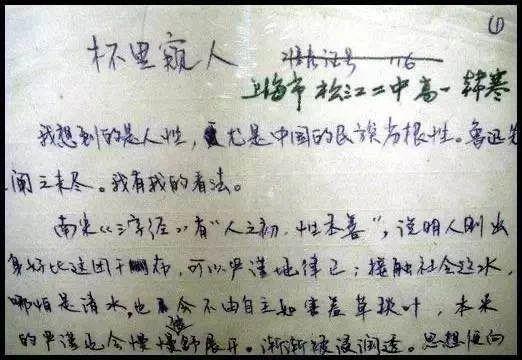 ①
杯里窥人
准考证号 116
上海市 松江二中 高一 韩寒
我想到的是人性,尤是中国的民族劣根性。鲁迅先
阐之未尽。我有我的看法。
南宋《三字经》有“人之初,性本善”,说明人刚出
身好比这团干布,可以严谨地律己;接触社会这水,
哪怕是清水,也会不由自主如害羞草叶,本来
的严谨也会慢慢地舒展开,渐渐被浸润透。思想便向